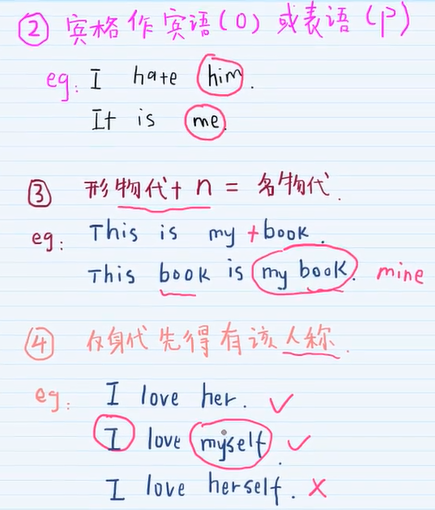 ② 宾格作宾语(O)或表语(P)
eg: I hate him.
It is me.
③ 形物代+n=名物代.
eg: This is my +book.
This book is my book. mine
④ 反身代先得有该人称.
eg: I love her. ✓
I love myself. ✓
I love herself. ✗